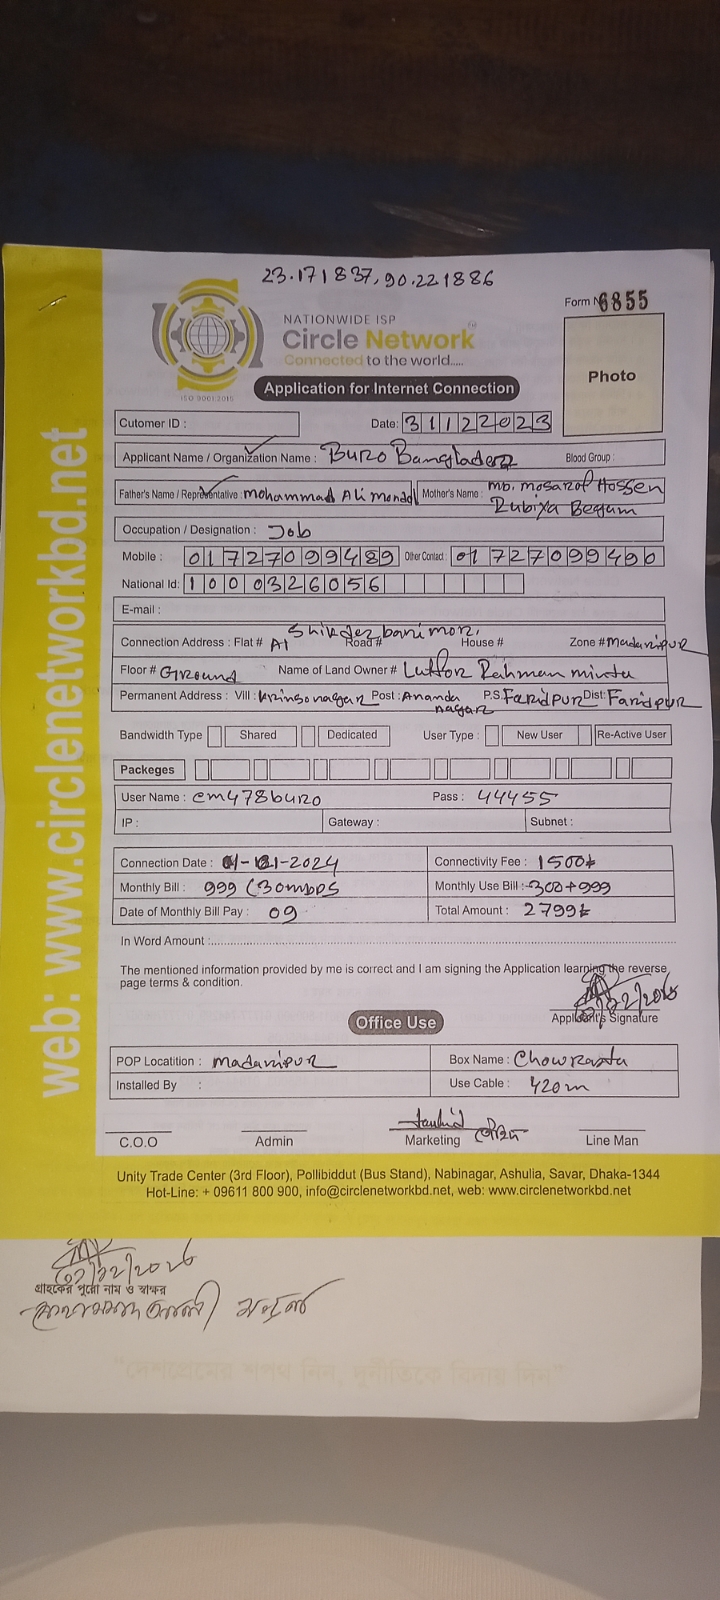 23.171837, 90.221886
Form N 6855
NATIONWIDE ISP
Circle Network™
Connected to the world.....
ISO 9001:2015
Photo
Application for Internet Connection
Cutomer ID : Date: 31122023
Applicant Name / Organization Name : Buro Bangladesh Blood Group :
Father's Name / Representative : Mohammad Ali Mondal Mother's Name : Md. Mosarof Hossen
Rubiya Begum
Occupation / Designation : Job
Mobile : 01727099489 Other Contact : 01727099490
National Id: 1000326056
E-mail :
Connection Address : Flat # A1 Road # House # Zone # Madaripur
Floor # Ground Name of Land Owner # Lutfor Rahman
Permanent Address : Vill : Post : Ananda nagar P.S: Faridpur Dist: Faridpur
Bandwidth Type Shared Dedicated User Type : New User Re-Active User
Packeges
User Name : cm478buro Pass : 44455
IP : Gateway : Subnet :
Connection Date : 01-01-2024 Connectivity Fee : 1500৳
Monthly Bill : 999 (30mbps Monthly Use Bill :- 300+999
Date of Monthly Bill Pay : 09 Total Amount : 2799৳
In Word Amount :
The mentioned information provided by me is correct and I am signing the Application learning the reverse
page terms & condition.
Applicant's Signature
Office Use
POP Locatition : Madaripur Box Name : Chowrasta
Installed By : Use Cable : 420m
C.O.O Admin Marketing Line Man
Unity Trade Center (3rd Floor), Pollibiddut (Bus Stand), Nabinagar, Ashulia, Savar, Dhaka-1344
Hot-Line: + 09611 800 900, info@circlenetworkbd.net, web: www.circlenetworkbd.net
web: www.circlenetworkbd.net
গ্রাহকের পুরো নাম ও স্বাক্ষর
"দেশপ্রেমের শপথ নিন, দুর্নীতিকে বিদায় দিন"